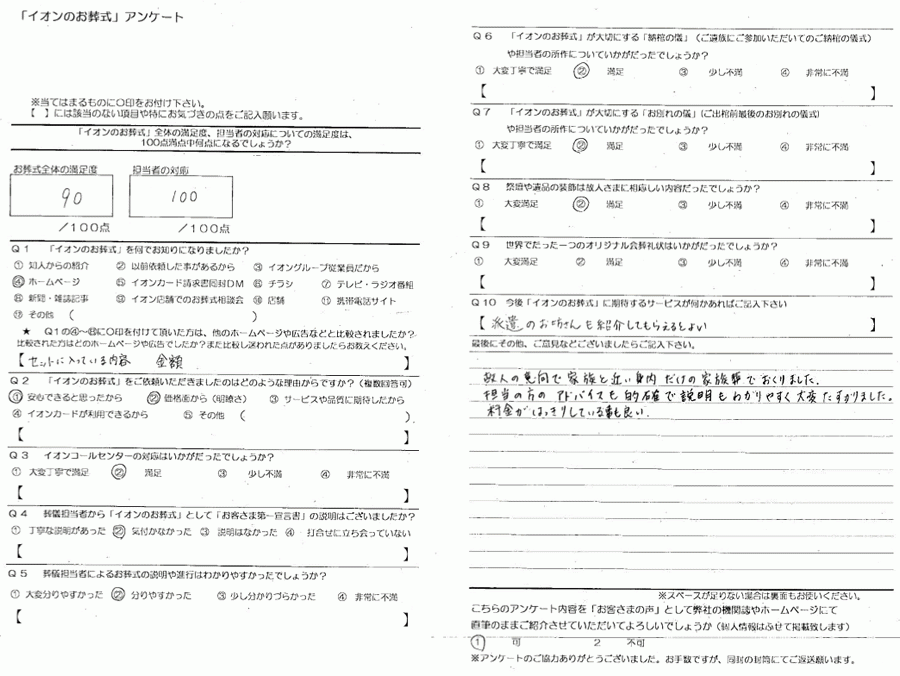 「イオンのお葬式」アンケート
※当てはまるものに○印をお付け下さい。
【　】には該当のない項目や特にお気づきの点をご記入願います。
「イオンのお葬式」全体の満足度、担当者の対応についての満足度は、
100点満点中何点になるでしょうか？
お葬式全体の満足度　担当者の対応
90　100
／100点　／100点
Q1　「イオンのお葬式」を何でお知りになりましたか？
① 知人からの紹介　② 以前依頼した事があるから　③ イオングループ従業員だから
④ ホームページ　⑤ イオンカード請求書同封DM　⑥ チラシ　⑦ テレビ・ラジオ番組
⑧ 新聞・雑誌記事　⑨ イオン店舗でのお葬式相談会　⑩ 店舗　⑪ 携帯電話サイト
⑫ その他　（　）
★　Q1の④～⑪に○印を付けて頂いた方は、他のホームページや広告などと比較されましたか？
比較された方はどのホームページや広告でしたか？また比較し迷われた点がありましたらお教えください。
【セットに入っている内容　金額　】
Q2　「イオンのお葬式」をご依頼いただきましたのはどのような理由からですか？（複数回答可）
① 安心できると思ったから　② 価格面から（明瞭さ）　③ サービスや品質に期待したから
④ イオンカードが利用できるから　⑤ その他　（　）
【　】
Q3　イオンコールセンターの対応はいかがだったでしょうか？
① 大変丁寧で満足　② 満足　③ 少し不満　④ 非常に不満
【　】
Q4　葬儀担当者から「イオンのお葬式」として「お客さま第一宣言書」の説明はございましたか？
① 丁寧な説明があった　② 気付かなかった　③ 説明はなかった　④ 打合せに立ち会っていない
【　】
Q5　葬儀担当者によるお葬式の説明や進行はわかりやすかったでしょうか？
① 大変分りやすかった　② 分りやすかった　③ 少し分かりづらかった　④ 非常に不満
【　】
Q6　「イオンのお葬式」が大切にする「納棺の儀」（ご遺族にご参加いただいてのご納棺の儀式）
や担当者の所作についていかがだったでしょうか？
① 大変丁寧で満足　② 満足　③ 少し不満　④ 非常に不満
【　】
Q7　「イオンのお葬式」が大切にする「お別れの儀」（ご出棺前最後のお別れの儀式）
や担当者の所作についていかがだったでしょうか？
① 大変丁寧で満足　② 満足　③ 少し不満　④ 非常に不満
【　】
Q8　祭壇や遺品の装飾は故人さまに相応しい内容だったでしょうか？
① 大変満足　② 満足　③ 少し不満　④ 非常に不満
【　】
Q9　世界でたった一つのオリジナル会葬礼状はいかがだったでしょうか？
① 大変満足　② 満足　③ 少し不満　④ 非常に不満
【　】
Q10　今後「イオンのお葬式」に期待するサービスが何かあればご記入下さい
【派遣のお坊さんも紹介してもらえるとよい　】
最後にその他、ご意見などございましたらご記入下さい。
故人の意向で家族と近い身内だけの家族葬でおくりました。
担当の方のアドバイスも的確で説明もわかりやすく大変たすかりました。
料金がはっきりしている事も良い.
※スペースが足りない場合は裏面もお使いください。
こちらのアンケート内容を「お客さまの声」として弊社の機関誌やホームページにて
直筆のままご紹介させていただいてよろしいでしょうか（個人情報はふせて掲載致します）
1　可　2　不可
※アンケートのご協力ありがとうございました。お手数ですが、同封の封筒にてご返送願います。